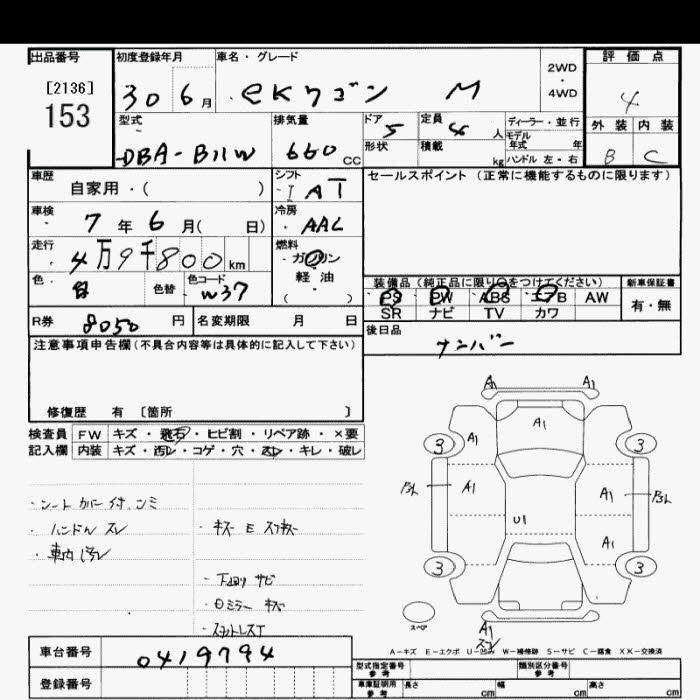 出品番号 初度登録年月 車名・グレード 評価点
[2136] 2WD
・
153 30 6月 ekワゴン M 4WD 4
型式 排気量 ドア 5 定員 4人 ディーラー・並行 外装 内装
DBA-B11W 660cc 形状 積載 kg モデル年式 年 B C
ハンドル 左・右
車歴 自家用・( ) シフト I AT セールスポイント (正常に機能するものに限ります)
車検 7年6月( 日) 冷房 AAC
走行 4万9千800km 燃料 ガソリン
軽油
( )
色 白 色替 色コード W37 装備品(純正品に限り○をつけてください) 新車保証書
PS PW ABS エアB AW 有・無
SR ナビ TV カワ
R券 8050円 名変期限 月 日 後日品
ナンバー
注意事項申告欄(不具合内容等は具体的に記入して下さい)
修復歴 有 [箇所 ]
検査員 FW キズ・飛石・ヒビ割・リペア跡・×要
記入欄 内装 キズ・汚レ・コゲ・穴・スレ・キレ・破レ
A1 A1
A1
3 A1 3
A1 A1
U1
A1
3 3
・シートカバー付 シミ
・ハンドルスレ
・キズ E スリキズ
・車内汚レ
・下回りサビ
・ロミラーキズ
スペア A1
A-キズ E-エクボ U-凹み W-補修跡 S-サビ C-腐食 XX-交換済
車台番号 0419794
型式指定番号 参考 類別区分番号 参考
登録番号
車庫証明用 参考 長さ cm 幅 cm 高さ cm